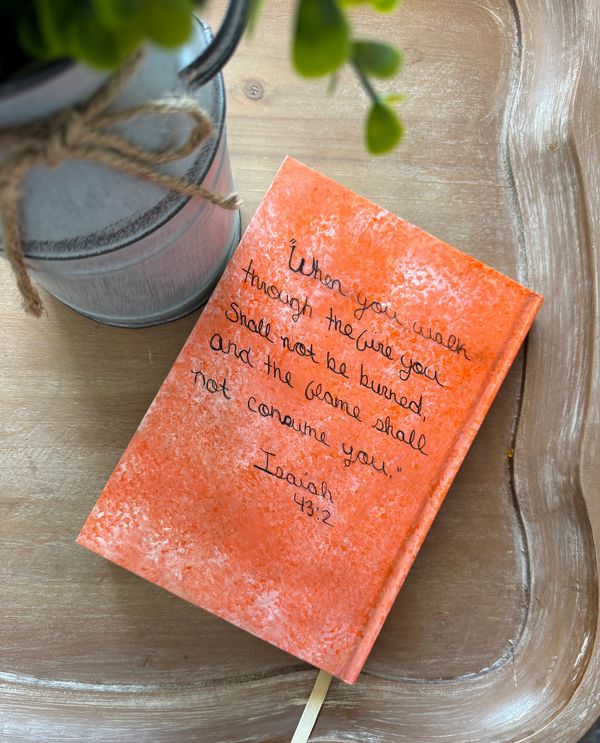 "When you walk
through the fire you
Shall not be burned,
and the flame shall
not consume you."
Isaiah
43:2